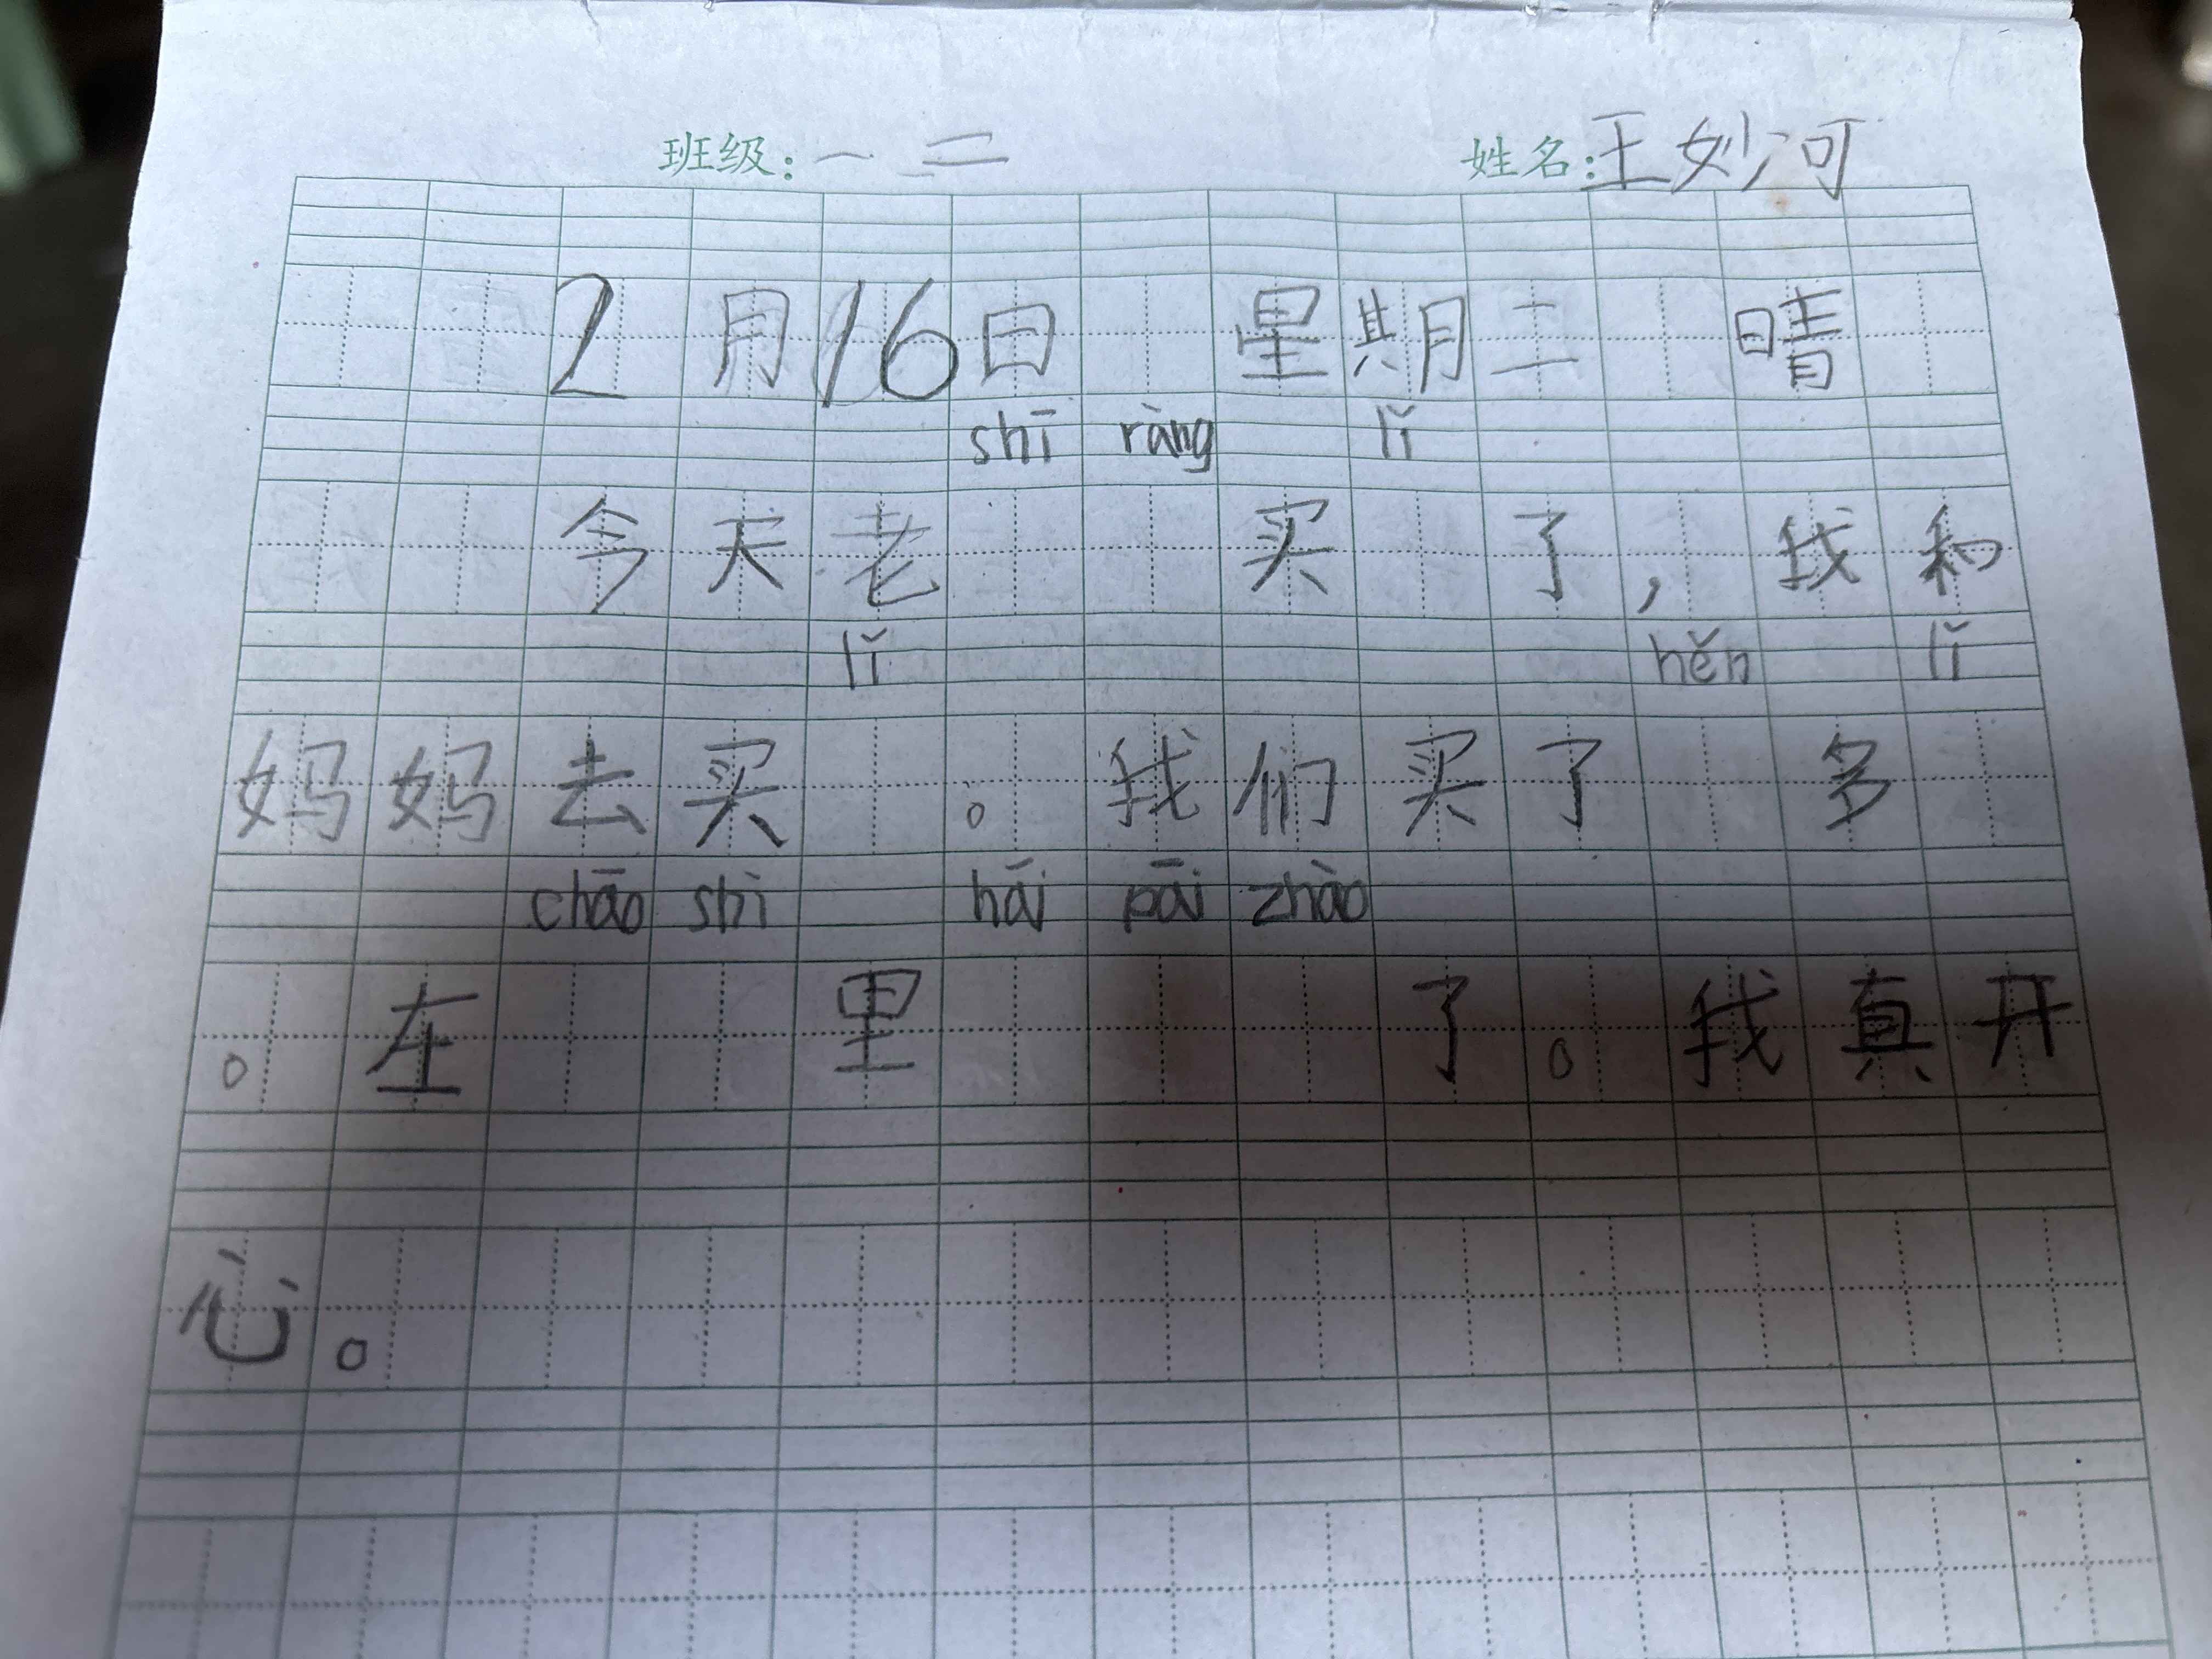 班级：一 二 姓名：王妙河
2月16日 星期二 晴
shī ràng lǐ
今天老 买 了，我和
lǐ hěn lǐ
妈妈去买 。我们买了 多
chāo shì hāi pāi zhào
。在 里 了。我真开
心。